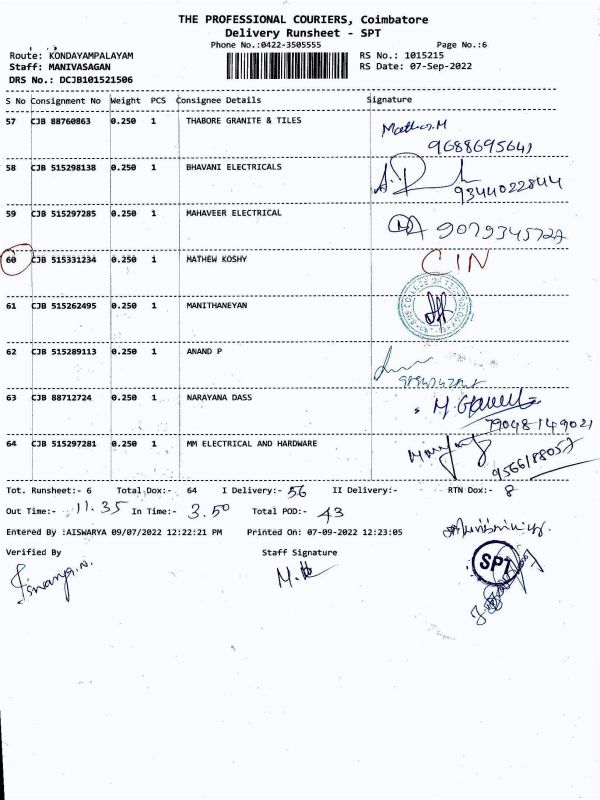 THE PROFESSIONAL COURIERS, Coimbatore
Delivery Runsheet - SPT
Phone No.:0422-3505555 Page No.:6
Route: KONDAYAMPALAYAM RS No.: 1015215
Staff: MANIVASAGAN RS Date: 07-Sep-2022
DRS No.: DCJB101521506
S No Consignment No Weight PCS Consignee Details Signature
57 CJB 88760863 0.250 1 THABORE GRANITE & TILES Mathew.M
58 CJB 515298138 0.250 1 BHAVANI ELECTRICALS
9344022844
59 CJB 515297285 0.250 1 MAHAVEER ELECTRICAL
60 CJB 515331234 0.250 1 MATHEW KOSHY CIN
61 CJB 515262495 0.250 1 MANITHANEYAN
62 CJB 515289113 0.250 1 ANAND P
63 CJB 88712724 0.250 1 NARAYANA DASS
79048149021
64 CJB 515297281 0.250 1 MM ELECTRICAL AND HARDWARE
9566188057
Tot. Runsheet:- 6 Total Dox:- 64 I Delivery:- 56 II Delivery:- RTN Dox:- 8
Out Time:- 11.35 In Time:- 3.50 Total POD:- 43
Entered By :AISWARYA 09/07/2022 12:22:21 PM Printed On: 07-09-2022 12:23:05
Verified By Staff Signature
SPT